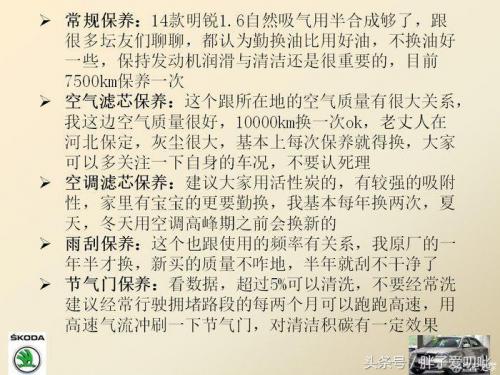 常规保养：14款明锐1.6自然吸气用半合成够了，跟
很多坛友们聊聊，都认为勤换油比用好油，不换油好
一些，保持发动机润滑与清洁还是很重要的，目前
7500km保养一次
空气滤芯保养：这个跟所在地的空气质量有很大关系，
我这边空气质量很好，10000km换一次ok，老丈人在
河北保定，灰尘很大，基本上每次保养就得换，大家
可以多关注一下自身的车况，不要认死理
空调滤芯保养：建议大家用活性炭的，有较强的吸附
性，家里有宝宝的更要勤换，我基本每年换两次，夏
天，冬天用空调高峰期之前会换新的
雨刮保养：这个也跟使用的频率有关系，我原厂的一
年半才换，新买的质量不咋地，半年就刮不干净了
节气门保养：看数据，超过5%可以清洗，不要经常洗
建议经常行驶拥堵路段的每两个月可以跑跑高速，用
高速气流冲刷一下节气门，对清洁积碳有一定效果
ŠKODA
头条号／胖子爱叨叱